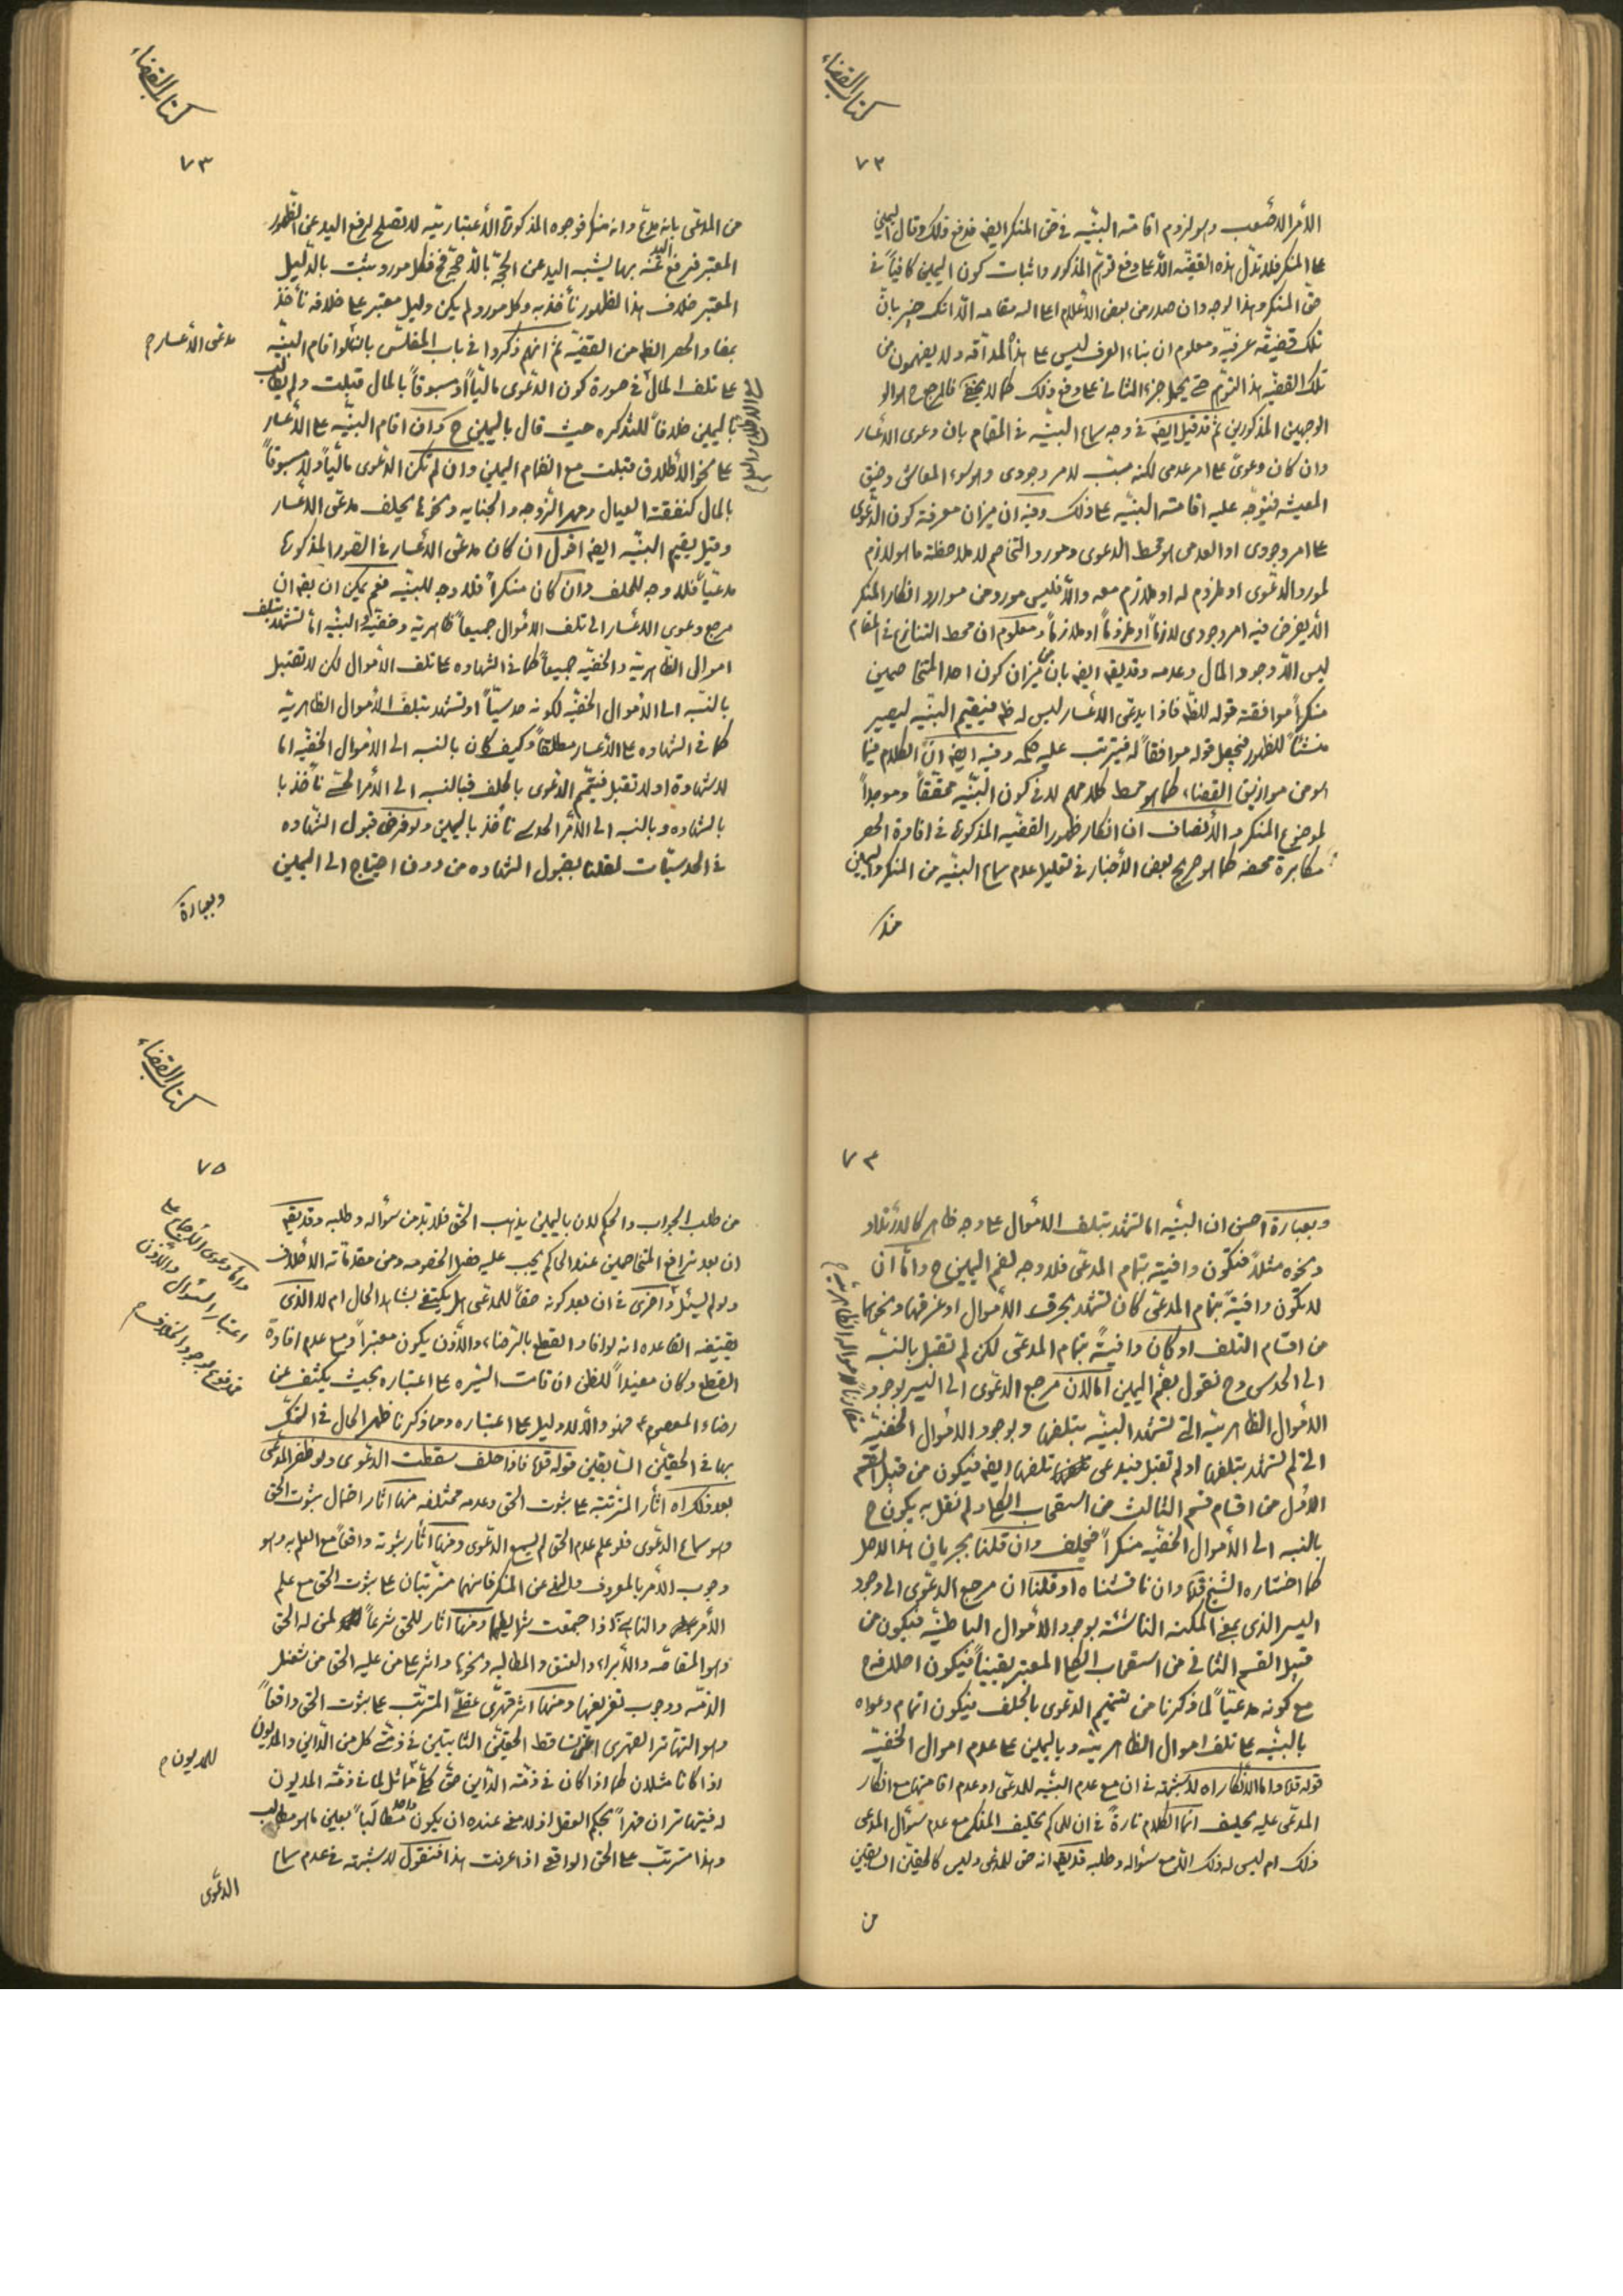 كتاب القضاء
٧٢
الأمر الأصعب وهو لزوم اقامته البيّنه في حق المنكر ايضا فدفع ذلك وقال اليمين
على المنكر فلا تدل هذه القضيّه الّا على دفع توهّم المذكور واثبات كون اليمين كافياً في
حق المنكر وهذا الوجه وان صدر من بعض الاعلام اعلى الله مقامه الّا انك خبير بان
تلك قضيّة عرفيّه ومعلوم ان بناء العرف ليس على هذا المداقه ولا يفهمون من
تلك القضيّه هذا التوهّم حتى يحمل جزء الثاني على دفع ذلك كما لا يخفى فالمرجع ح هو
الوجهين المذكورين ثم قد قيل ايضا في وجه سماع البيّنه في المقام بان دعوى الأعسار
وان كان دعوى على امر عدمي لكنه مسبّب لامر وجودى وهو سوء المعاش وضيق
المعيشه فيتوجّه عليه اقامته البيّنه على ذلك وفيه ان ميزان معرفة كون الدّعوى
على امر وجودى او العدمى هو محط الدعوى ومورد التخاصم لا ملاحظة ما هو لازم
لمورد الدّعوى او ملزوم له او ملازم معه والّا فليس مورد من موارد انكار المنكر
الّا يفرض فيه امر وجودى لازماً او ملزوماً او ملازماً ومعلوم ان محط التنازع في المقام
ليس الّا وجود المال وعدمه وقد يقال ايضا بان ميزان كون احد المتخاصمين
منكراً موافقة قوله للظ فاذا يدعى الأعسار ليس له ظ فيقيم البيّنه ليصير
منشأً للظهور فيجعل قوله موافقاً له فيترتب عليه حكمه وفيه ايضا انّ الكلام فيما
هو من موازين القضاء كما هو محط كلامهم لا في كون البيّنه محققاً وموجداً
لموضوع المنكر والأنصاف ان انكار ظهور القضيّه المذكورة في افادة الحصر
مكابرة محضه كما هو صريح بعض الأخبار في تعليل عدم سماع البيّنه من المنكر واليمين
كتاب القضاء
٧٣
من المدّعى بانه مدع وانه منكر فوجوه المذكورة الأعتباريّه لا تصلح لرفع اليد عن الظهور
المعتبر فرفع اليد عنه بها يشبه اليد عن الحجّة بالّا حجّة فح فكل مورد يثبت بالدّليل
المعتبر خلاف هذا الظهور نأخذ به وكل مورد لم يكن دليل معتبر على خلافه نأخذ
بمفاد الحصر الظ من القضيّة ثم انهم ذكروا في باب المفلّس بانّه لو اقام البيّنه
مدعى الأعسار ح
على تلف المال في صورة كون الدّعوى ماليّاً او مسبوقاً بالمال قبلت ولم يطالب
باليمين خلافاً للتذكره حيث قال باليمين ح وان اقام البيّنه على الأعسار
على نحو الأطلاق قبلت مع انضمام اليمين وان لم تكن الدّعوى ماليّاً ولا مسبوقاً
بالمال كنفقة العيال ومهر الزّوجه والجنايه ونحوها يحلف مدعى الأعسار
وقيل يقيم البيّنه ايضا اقول ان كان مدعى الأعسار في الصور المذكورة
مدعيّاً فلا وجه للحلف وان كان منكراً فلا وجه للبيّنه فنعم يمكن ان يقال ان
مرجع دعوى الاعسار الى تلف الأموال جميعاً ظاهريّه وخفيّه والبيّنه امّا تشهد بتلف
اموال الظاهريّه والخفيّه جميعاً كما في الشهاده على تلف الأموال لكن لا تقبل
بالنسبه الى الأموال الخفيّه لكونه حدسيّاً او تشهد بتلف الأموال الظاهريّه
كما في الشهاده على الأعسار مطلقاً وكيف كان بالنسبه الى الأموال الخفيّه اما
لا شهادة او لا تقبل فيتمّم الدّعوى بالحلف فبالنسبه الى الأمر الحسّى نأخذ با
بالشهاده وبالنسبه الى الأمر الحدسى نأخذ باليمين ولو فرض قبول الشهاده
في الحدسيّات لقلنا بقبول الشهاده من دون احتياج الى اليمين
وبعبارة
٧٤
وبعبارة احسن ان البيّنه اما تشهد بتلف الأموال على وجه ظاهر كالأرتداد
ونحوه مثلاً فتكون وافيته بتمام المدعى فلا وجه لضم اليمين ح وامّا ان
لا تكون وافيةً بتمام المدعى كان تشهد بحرق الأموال او غرقها ونحوهما
من اقسام التلف او كان وافيةً بتمام المدعى لكن لم تقبل بالنسبه
الى الحدسى وح نقول بضم اليمين امّا لان مرجع الدعوى الى اليسر بوجود
الأموال الظاهريّه التى تشهد البيّنه بتلفها وبوجود الأموال الخفيّه
التى لم تشهد بتلفها او لم تقبل فيدعى تلفها ايضا فيكون من قبيل القسم
الأول من اقسام قسم الثالث من استصحاب الكلى ولم نقل به يكون ح
بالنسبه الى الأموال الخفيّه منكراً فيحلف وان قلنا بجريان هذا الاصل
كما اختاره الشيخ قده وان ناقشناه او قلنا ان مرجع الدعوى الى وجود
اليسر الذى بمعنى المكنه الناشئه بوجود الأموال الباطنيّه فيكون من
قبيل القسم الثانى من استصحاب الكلى المعتبر يقيناً فيكون احلافه ح
مع كونه مدعيّاً لما ذكرنا من تتميم الدّعوى بالحلف فيكون اتمام دعواه
بالبيّنه على تلف اموال الظاهريّه وباليمين على عدم اموال الخفيّه
قوله قده واما الأنكار اه لا شبهة في ان مع عدم البيّنه للمدعى او عدم اقامتها مع انكار
المدّعى عليه يحلف انّما الكلام تارةً في ان للحاكم تحليف المنكر مع عدم سؤال المدعى
ذلك ام ليس له ذلك الّا مع سؤاله وطلبه قد يقال انه حق للمدعى وليس كالحقين السابقين
من
كتاب القضاء
٧٥
من طلب الجواب والحكم لان باليمين يذهب الحق فلا بد من سؤاله وطلبه وقد يقال
ان بعد ترافع المتخاصمين عند الحاكم يجب عليه فصل الخصومه ومن مقدماته الأحلاف
ولو لم يسئل واخرى في ان بعد كونه حقاً للمدعى هل يكتفى بشاهد الحال ام لا الذى
يقتضيه القاعده انه لو افاد القطع بالرضاء والأذن يكون معتبراً ومع عدم افادة
القطع وكان مفيداً للظن ان قامت السّيره على اعتباره بحيث يكشف عن
رضاء المعصوم ع فهو والّا لا دليل على اعتباره ومما ذكرنا ظهر الحال في التمسّك
بها في الحقين السّابقين قوله قده فاذا حلف سقطت الدعوى ولو ظفر المدعى
بعد ذلك اه اثار المترتبه على ثبوت الحق وعدمه مختلفه منها اثار احتمال ثبوت الحق
وهو سماع الدّعوى فلو علم عدم الحق لم يسمع الدّعوى ومنها اثار ثبوته واقعاً مع العلم به وهو
وجوب الأمر بالمعروف والنهى عن المنكر فانهما مترتبان على ثبوت الحق مع علم
الأمر والناهى اذا اجتمعت شرايطها ومنها اثار للحق شرعاً لمن له الحق
وهو المقاصّه والأبراء والعتق والمطالبه ونحوها واثر على من عليه الحق من شغل
الذمّه ووجوب تفريغها ومنها اثر قهرى عقلى المترتّب على ثبوت الحق واقعاً
وهو التهاتر القهرى اعنى تساقط الحقين الثابتين في ذمّة كل من الدّاين والمديون
اذا كانا مثلان كما اذا كان في ذمّة الدّاين حق كلّى مماثل لما في ذمّة المديون
للمديون ح
له فيتهاتران قهراً بحكم العقل اذ لا معنى عنده ان يكون مطالباً بعين ما هو مطالب
وهذا مترتّب على الحق الواقعى اذا عرفت هذا فنقول لا شبهة في عدم سماع
الدعوى